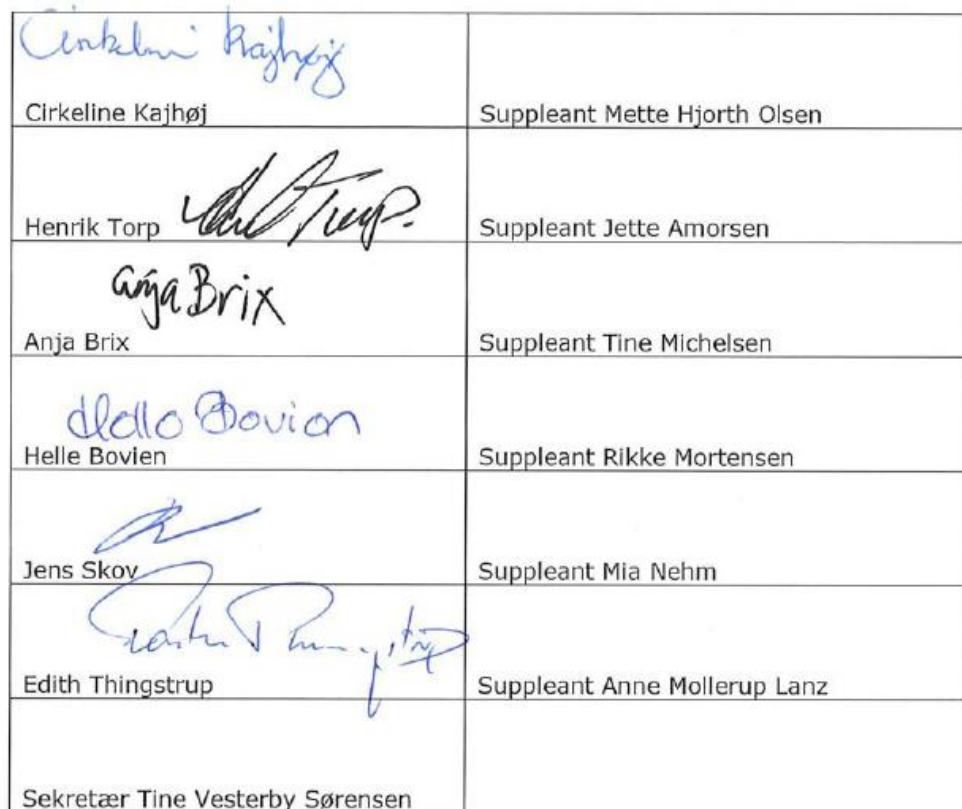 Cirkeline Kajhøj
Cirkeline Kajhøj
Suppleant Mette Hjorth Olsen
Henrik Torp
Torp.
Suppleant Jette Amorsen
Anja Brix
Anja Brix
Suppleant Tine Michelsen
Helle Bovien
Helle Bovien
Suppleant Rikke Mortensen
Jens Skov
Suppleant Mia Nehm
Thingstrup
Edith Thingstrup
Suppleant Anne Mollerup Lanz
Sekretær Tine Vesterby Sørensen